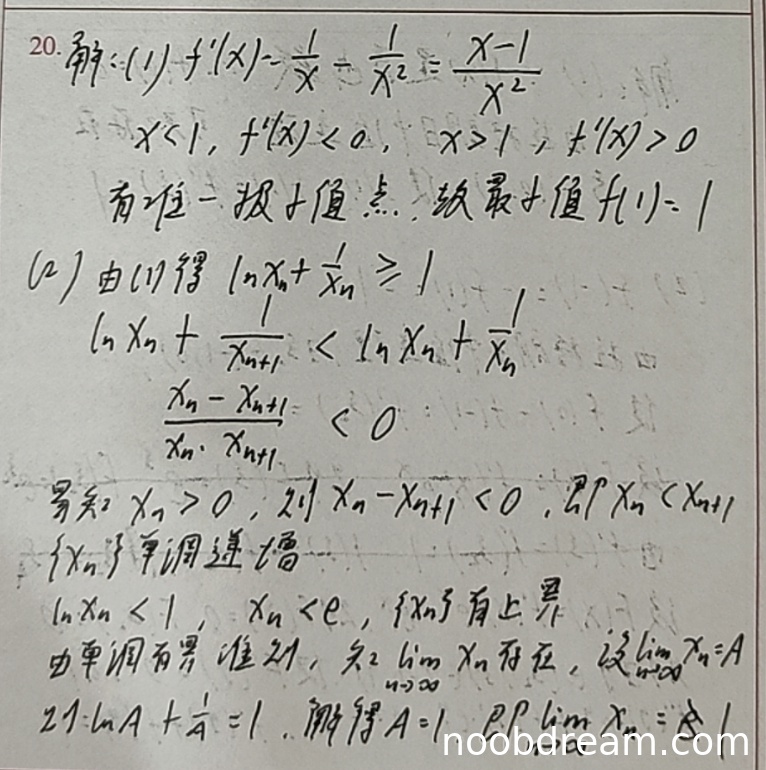 20. 解:(1) f'(x)=1/x - 1/x² = (x-1)/x²
x<1, f'(x)<0, x>1, f'(x)>0
有唯一极小值点, 故最小值f(1)=1
(2) 由(1)得 lnxₙ+1/xₙ ≥ 1
lnxₙ + 1/xₙ₊₁ < lnxₙ + 1/xₙ
(xₙ - xₙ₊₁)/(xₙ·xₙ₊₁) < 0
易知 xₙ>0, 则 xₙ-xₙ₊₁<0, 即 xₙ<xₙ₊₁
{xₙ}单调递增
lnxₙ<1, xₙ<e, {xₙ}有上界
由单调有界准则, 知 lim n→∞ xₙ存在, 设 lim n→∞ xₙ=A
则 lnA+1/A=1, 解得A=1 即 lim n→∞ xₙ = 1
noobdream.com